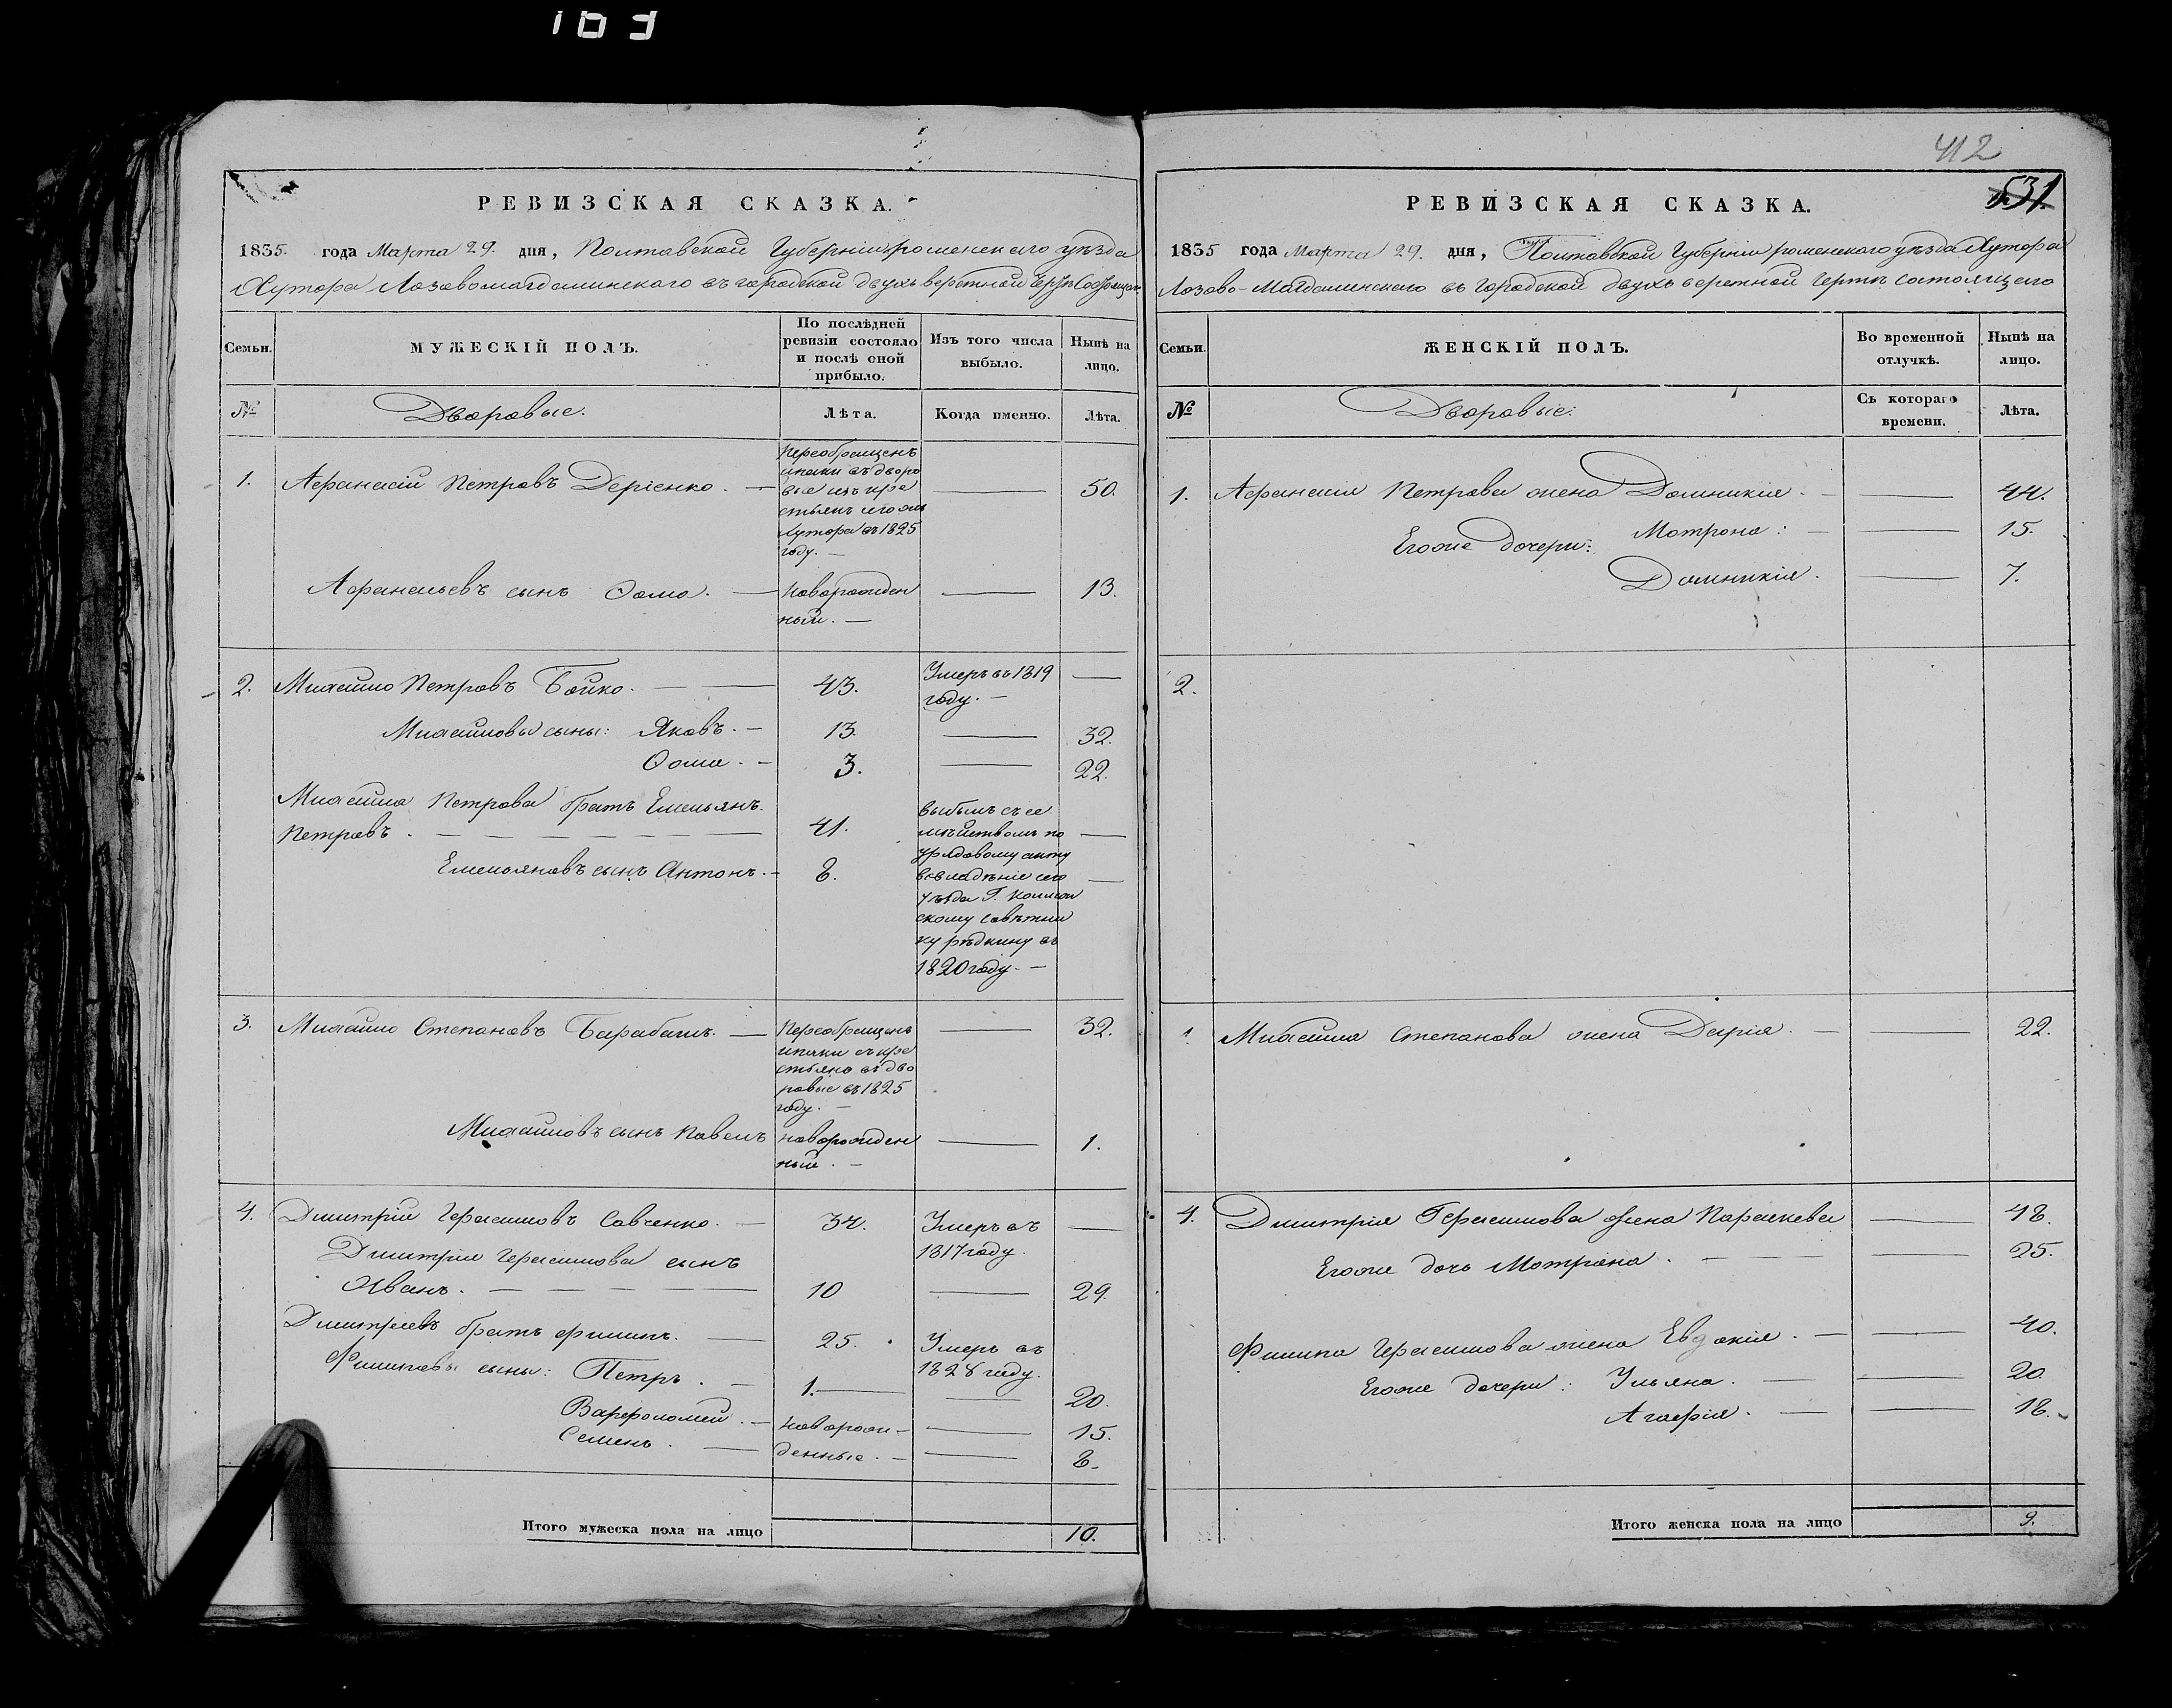 103
РЕВИЗСКАЯ СКАЗКА.
1835. года Марта 29. дня, Полтавской Губерніи роменскаго уѣзда
Хутора Лозовомагдалинскаго въ городской двухъ верстной чертѣ
Семьи.
МУЖЕСКІЙ ПОЛЪ.
По послѣдней
ревизіи состояло
и послѣ оной
прибыло.
Изъ того числа
выбыло.
Нынѣ на
лицо.
№
Дворовые.
Лѣта.
Когда именно.
Лѣта.
Переобращенъ
1. Афанасій Петровъ Деріенко. — въ дворо — 50.
вые изъ кре
стьянъ
Хутора въ 1825
году. —
Афанасьевъ сынъ Ѳома. — Новорожден — 13.
ный. —
2. Михайло Петровъ Бойко. — — 43. Умеръ въ 1819 —
году. —
Михайловы сыны: Яковъ. — 13. — 32.
Ѳома. — 3. — 22.
Михайла Петрова братъ Емельянъ. выбылъ съ се
Петровъ. — — — — — — — 41. мѣйствомъ по —
урядовому акту
Емельяновъ сынъ Антонъ. — 8. во владѣніе сего —
уѣзда Г. Коллеж
скому Совѣтни
ку рѣдкину въ
1820 году. —
3. Михайло Степановъ Барабашъ. — Переобращенъ — 32.
съ кре
стьянъ въ дво
ровые въ 1825
году. —
Михайловъ сынъ Павелъ новорожден — 1.
ный. —
4. Дмитрій Герасимовъ Савченко. — 34. Умеръ въ —
1817 году.
Дмитрія Герасимова сынъ
Иванъ. — — — — — 10 — 29.
Дмитріевъ братъ Филипъ. — 25. Умеръ въ
1828 году.
Филиповы сыны: Петръ. — 1. — — 20.
Варфоломей. — новорож- — 15.
Семенъ. — денные. — — 8.
Итого мужеска пола на лицо 10.
412
531
РЕВИЗСКАЯ СКАЗКА.
1835 года Марта 29. дня, Полтавской Губерніи роменскаго уѣзда Хутора
Лозово-Магдалинскаго въ городской двухъ верстной чертѣ состоящаго
Семьи.
ЖЕНСКІЙ ПОЛЪ.
Во временной
отлучкѣ.
Нынѣ на
лицо.
№
Дворовые:
Съ котораго
времени.
Лѣта.
1. Афанасія Петрова жена Домникія. — — 44.
Егоже дочери: Мотрона: — — 15.
Домникія. — 7.
2.
Михайла Степанова жена Дарія. — — 22.
4. Дмитрія Герасимова жена Параскева — 48.
Егоже дочь Мотрона. — — — — 25.
Филипа Герасимова жена Евдокія. — — 40.
Егоже дочери: Ульяна. — — 20
Агафія. — — 18.
Итого женска пола на лицо 9.